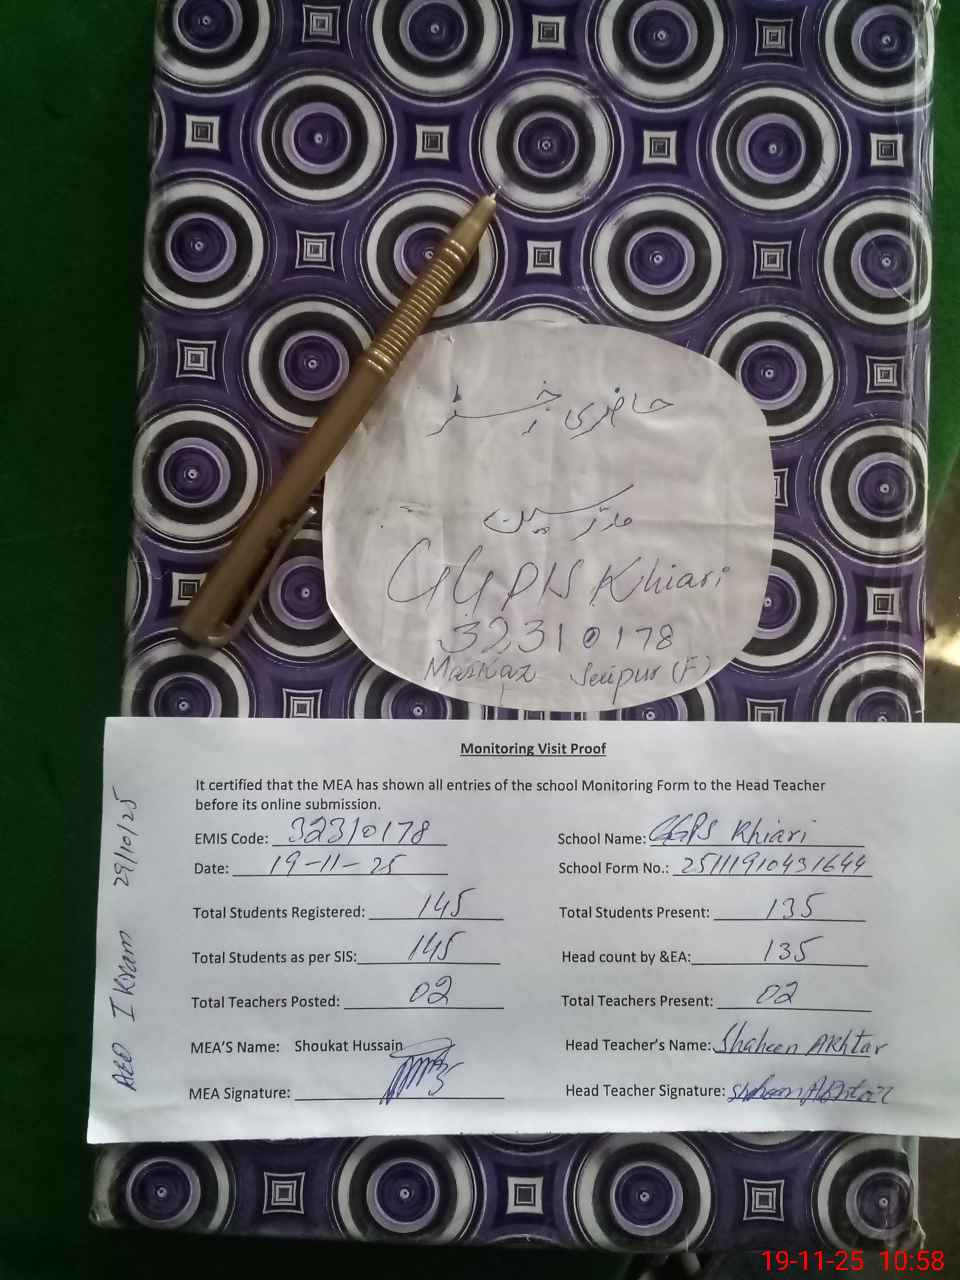 حاضری رجسٹر
مدرسین
GGPS Khiari
32310178
Markaz Seripur (F)
Monitoring Visit Proof
It certified that the MEA has shown all entries of the school Monitoring Form to the Head Teacher
before its online submission.
EMIS Code: 32310178 School Name: GGPS Khiari
Date: 19-11-25 School Form No.: 25111910431644
Total Students Registered: 145 Total Students Present: 135
Total Students as per SIS: 145 Head count by &EA: 135
Total Teachers Posted: 02 Total Teachers Present: 02
MEA'S Name: Shoukat Hussain Head Teacher's Name: Shaheen Akhtar
MEA Signature: Head Teacher Signature: Shaheen Akhtar
AEO Ikram 29/10/25
19-11-25 10:58